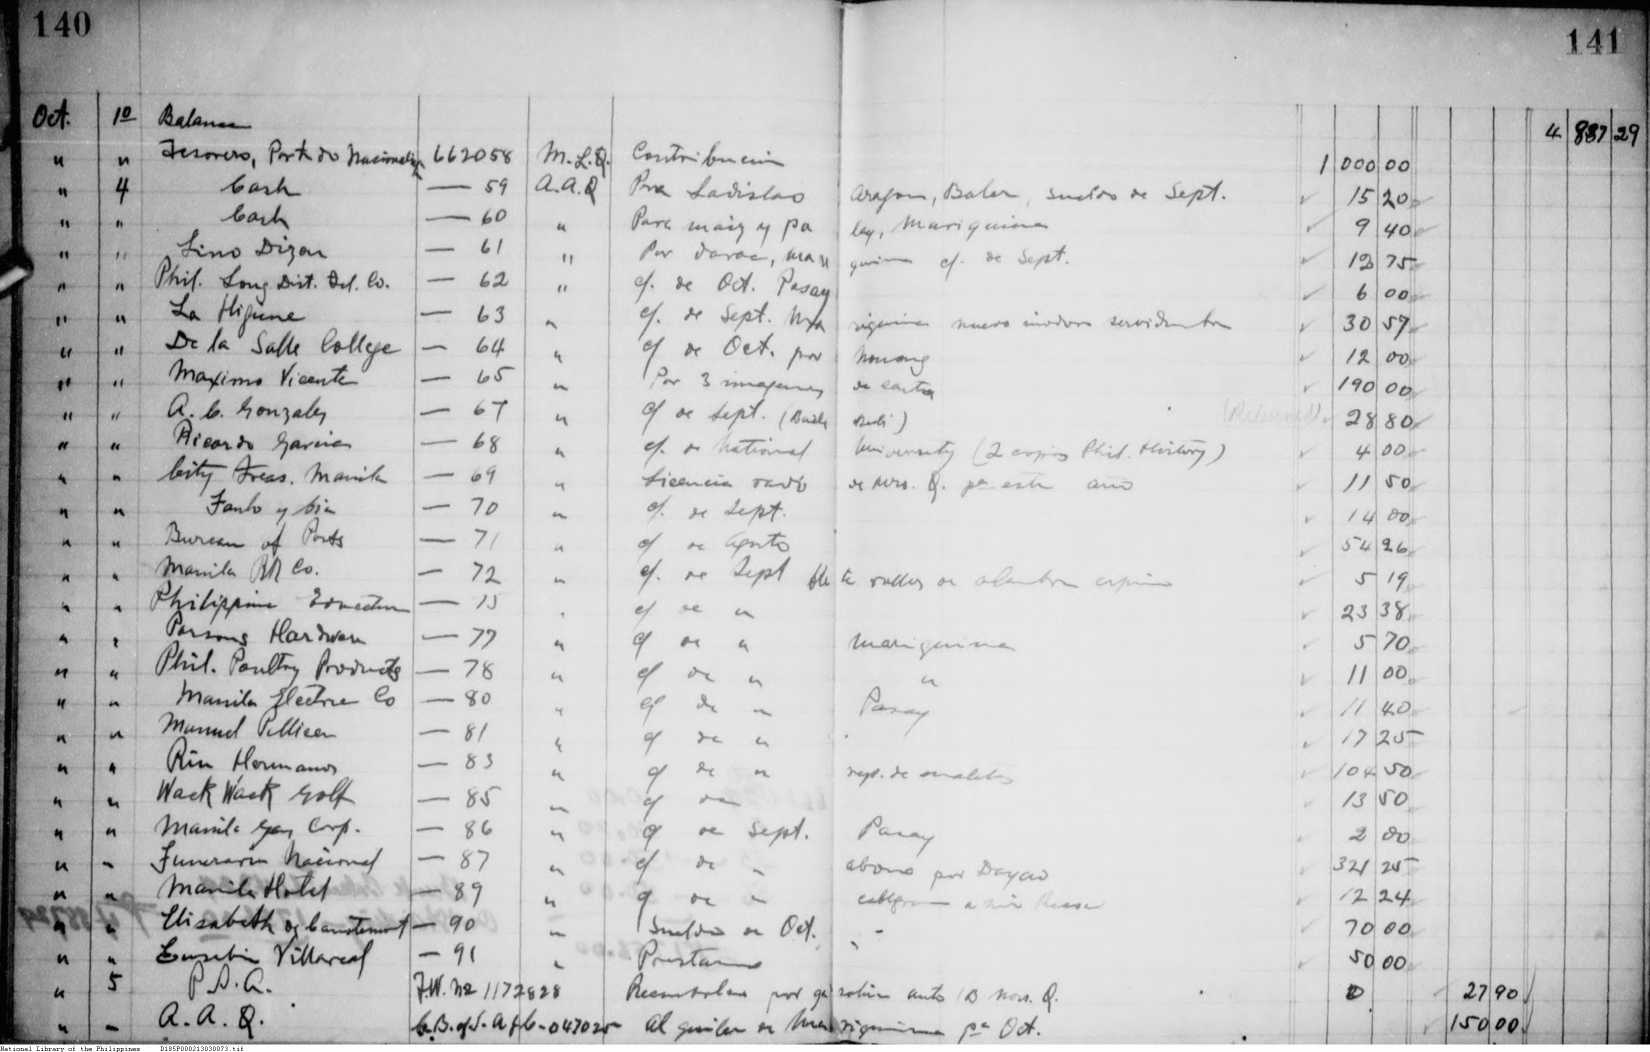 140
141
Oct. 1º Balance 4 887 29
" " Tesorero, Part do Nacionalista 662058 M.L.Q. Contribucion 1 000 00
" 4 Cash — 59 A.A.Q Para Ladislao Aragon, Baler, sueldo de Sept. 15 20
" " Cash — 60 " Para maiz y palay, Mariquina 9 40
" " Lino Dizon — 61 " Por darac, mariquina c/. de Sept. 12 75
" " Phil. Long Dist. Tel. Co. — 62 " c/. de Oct. Pasay 6 00
" " La Higiene — 63 " c/. de Sept. Mariquina nuevo inodoro servidumbre 30 57
" " De la Salle College — 64 " c/ de Oct. por Nonong 12 00
" " Maximo Vicente — 65 " Por 3 imagenes de 190 00
" " A. C. Gonzales — 67 " c/ de Sept. ( ) (Returned) 28 80
" " Ricardo Garcia — 68 " c/. de National University (2 copies Phil. History) 4 00
" " City Treas. Manila — 69 " Licencia radio de Mrs. Q. pª este año 11 50
" " y Cia — 70 " c/. de Sept. 14 00
" " Bureau of Posts — 71 " c/ de Agosto 54 26
" " Manila RR Co. — 72 " c/. de Sept de rollos de alambre espino 5 19
" " Philippine Education — 75 " c/ de " 23 38
" " Parsons Hardware — 77 " c/ de " Mariquina 5 70
" " Phil. Poultry Products — 78 " c/ de " " 11 00
" " Manila Electric Co — 80 " c/ de " Pasay 11 40
" " Manuel Pellicer — 81 " c/ de " 17 25
" " Riu Hermanos — 83 " c/ de " rep. de maletas 104 50
" " Wack Wack Golf — 85 " c/ de 13 50
" " Manila Gas Corp. — 86 " c/ de Sept. Pasay 2 00
" " Funeraria Nacional — 87 " c/ de " abono por 321 25
" " Manila Hotel — 89 " c/ de " cablegram a 12 24
" " Elisabeth — 90 " Sueldo de Oct. 70 00
" " Eusebio Villareal — 91 " Prestamo 50 00
" 5 P.S.A. T.W. Nº 1172828 Reembolso por gasolina auto 10 Mrs. Q. 0 27 90
" " A. A. Q. C.B. of I. A & C - 047025 Alquiler de Mariquina pª Oct. 150 00
National Library of the Philippines D185P000213030073.tif